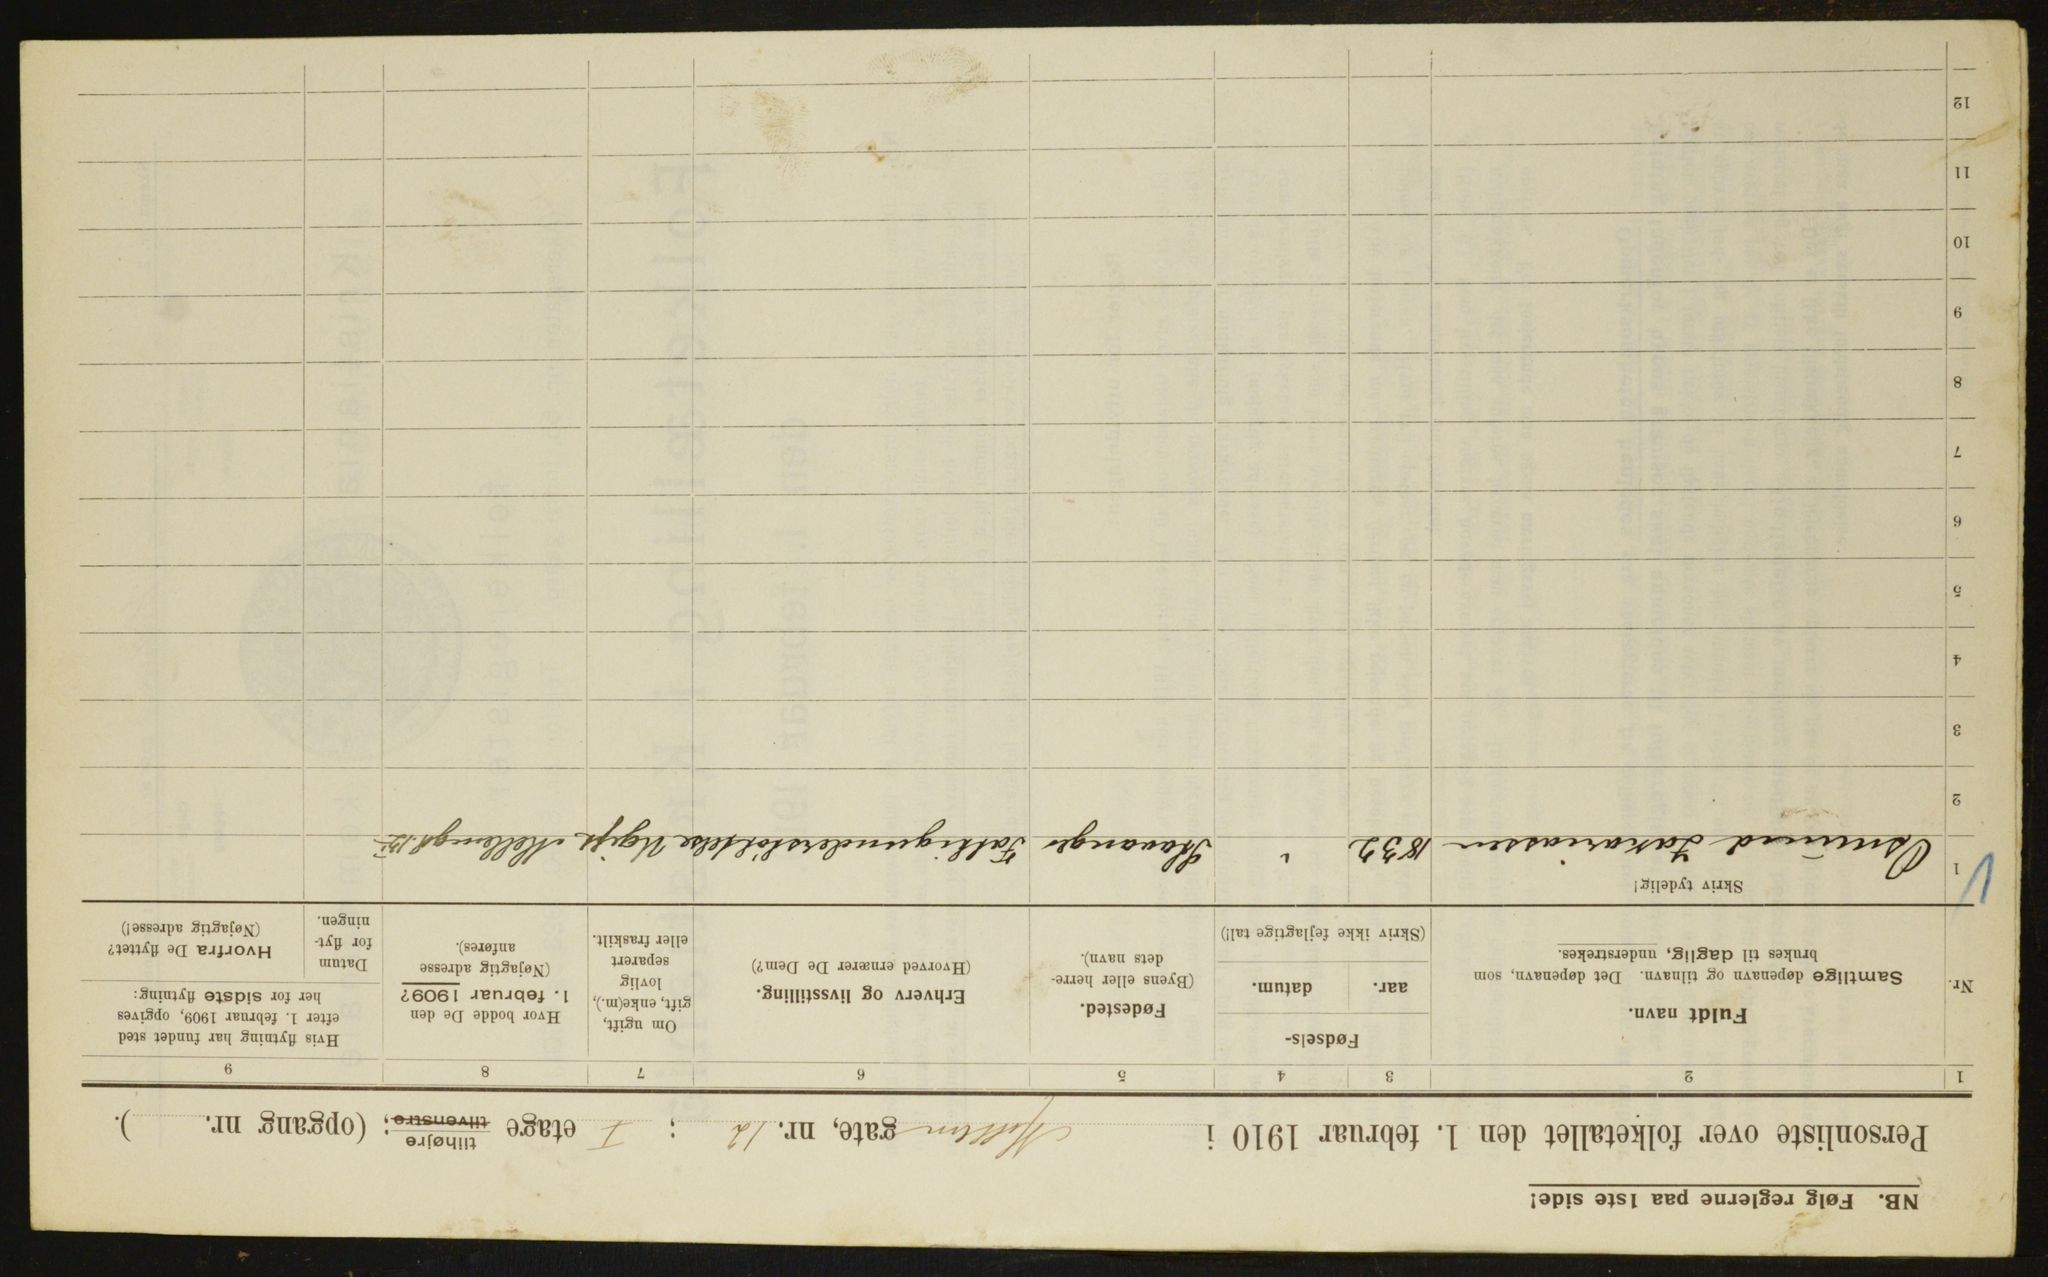 NB. Følg reglerne paa 1ste side!
Personliste over folketallet den 1. februar 1910 i Mellem gate, nr. 12 ; I etage tilhøjre tilvenstre; (opgang nr. ).
1 2 3 4 5 6 7 8 9
Nr.
Fuldt navn.
Samtlige døpenavn og tilnavn. Det døpenavn, som
brukes til daglig, understrekes.
Fødsels-
aar. datum.
(Skriv ikke fejlagtige tal!)
Fødested.
(Byens eller herre-
dets navn).
Erhverv og livsstilling.
(Hvorved ernærer De Dem?)
Om ugift,
gift, enke(m.),
lovlig
separert
eller fraskilt.
Hvor bodde De den
1. februar 1909?
(Nøjagtig adresse
anføres).
Hvis flytning har fundet sted
efter 1. februar 1909, opgives
her for sidste flytning:
Datum
for flyt-
ningen.
Hvorfra De flyttet?
(Nøjagtig adresse!)
Skriv tydelig!
1 Osmund Zakariassen 1832 " Stavanger Fattigunderstøttelse Ugift Mellemgt. 12
2
3
4
5
6
7
8
9
10
11
12